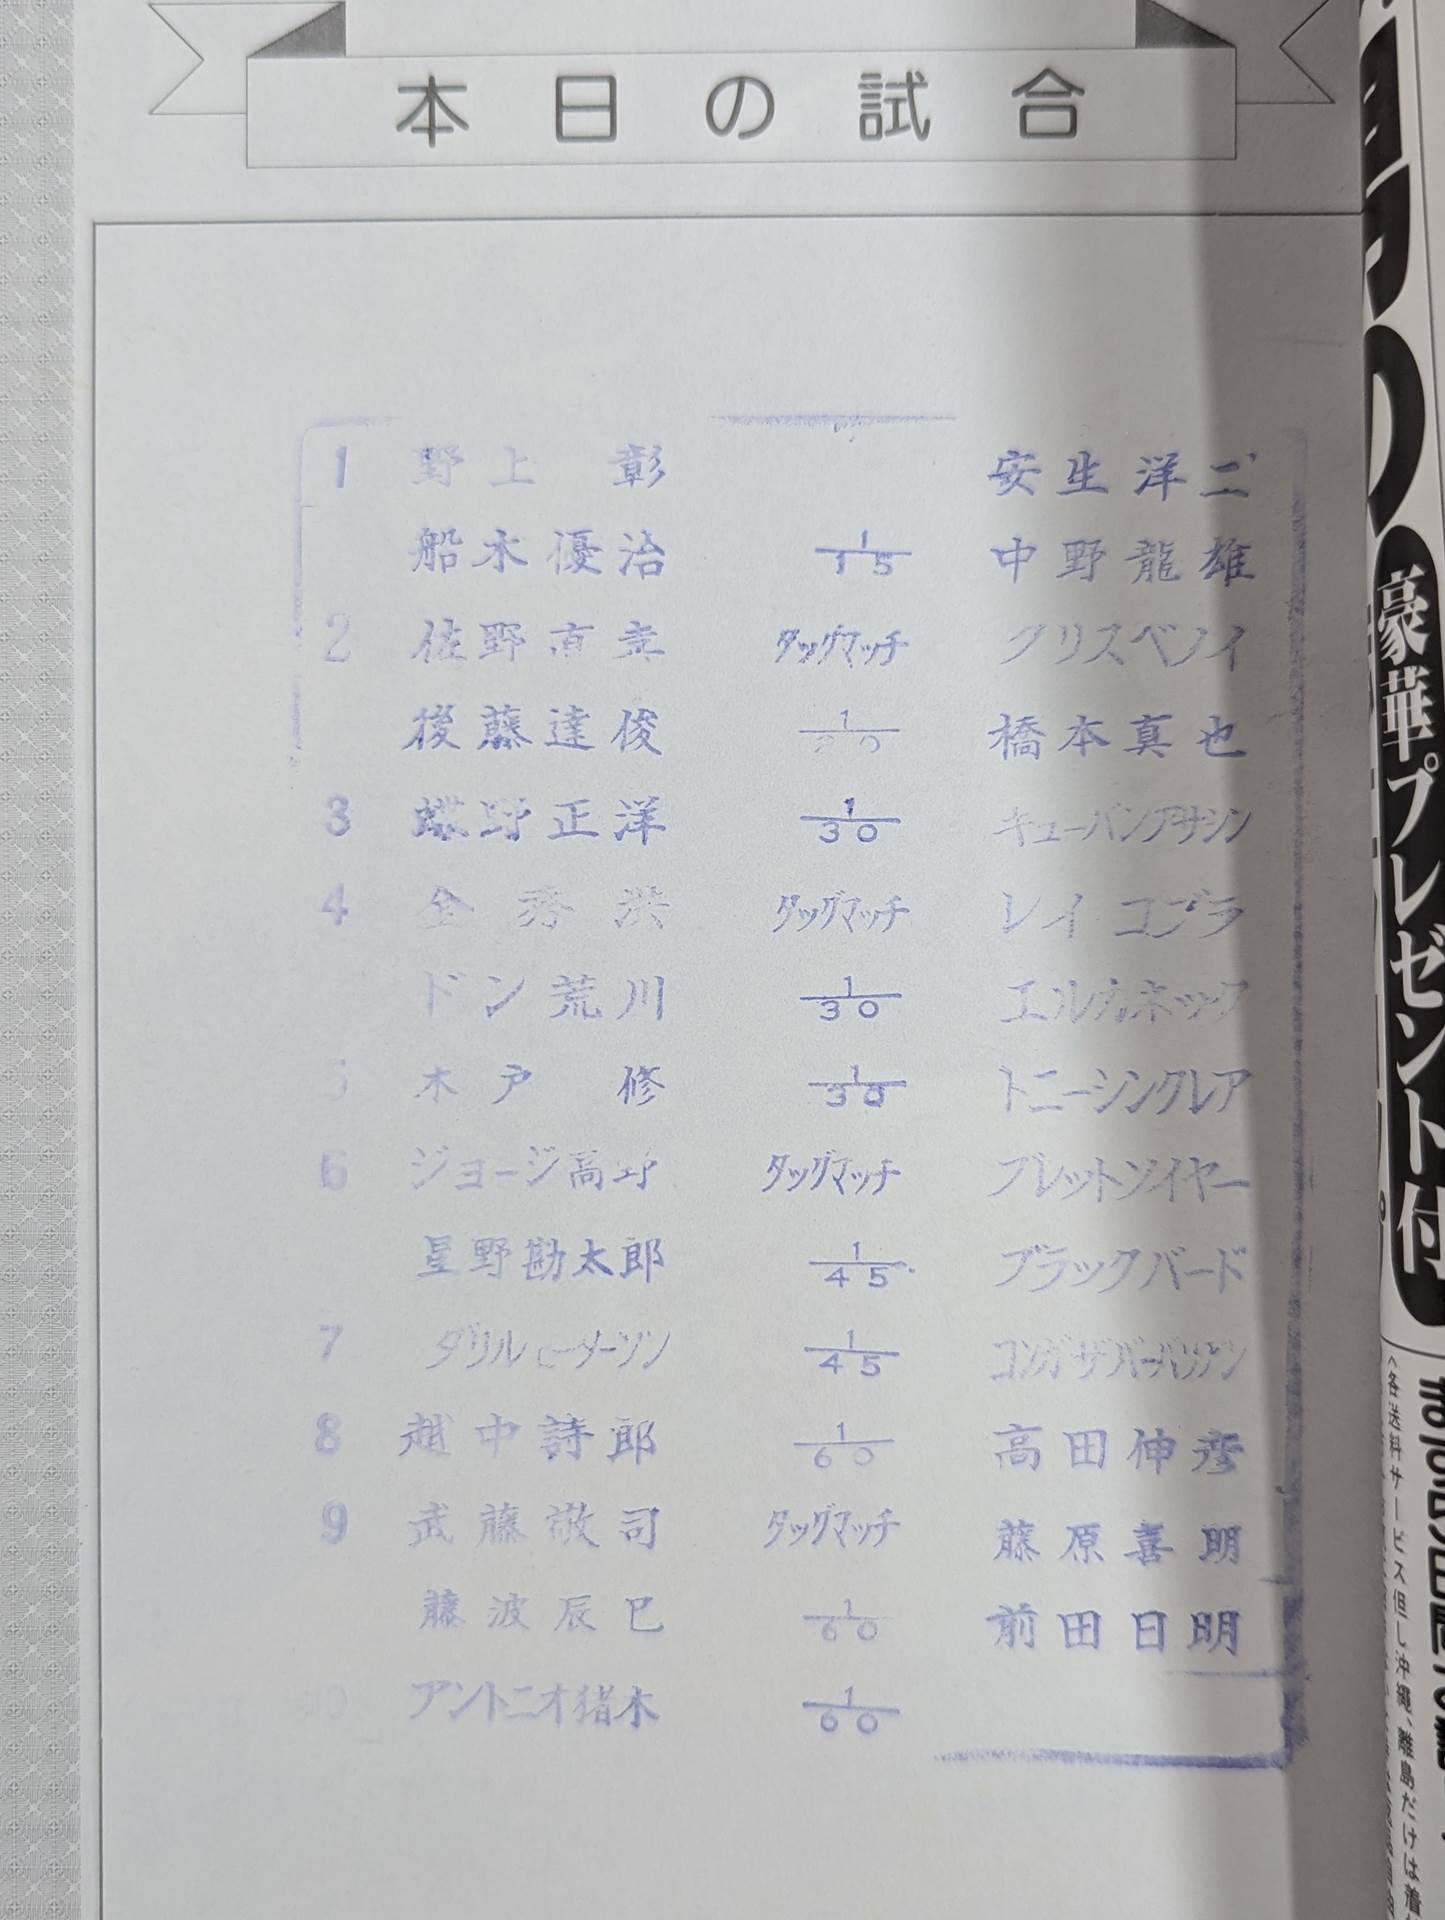 本日の試合
1 野上 彰 安生洋二
船木優治 1/15 中野龍雄
2 佐野直喜 タッグマッチ クリスベノイ
後藤達俊 1/20 橋本真也
3 蝶野正洋 1/30 キューバンアサシン
4 金秀洪 タッグマッチ レイコブラ
ドン荒川 1/30 エルカネック
5 木戸 修 1/30 トニーシンクレア
6 ジョージ高野 タッグマッチ ブレットソイヤー
星野勘太郎 1/45 ブラックバード
7 ダリルピーターソン 1/45 コンガザバーバリアン
8 越中詩郎 1/60 高田伸彦
9 武藤敬司 タッグマッチ 藤原喜明
藤波辰巳 1/60 前田日明
アントニオ猪木 1/60
豪華プレゼント付